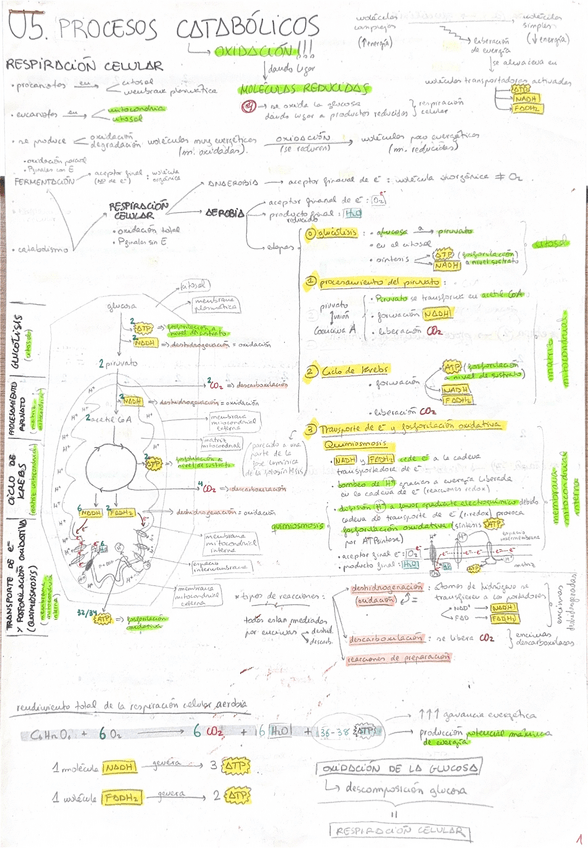 U5. PROCESOS CATABÓLICOS
OXIDACIÓN!!!
moléculas complejas (↑energía)
liberación de energía
moléculas simples (↓energía)
se almacena en
moléculas transportadoras activadas
ATP
NADH
FADH₂
dando lugar
MOLÉCULAS REDUCIDAS
→ se oxida la glucosa
dando lugar a productos reducidos
respiración celular
RESPIRACIÓN CELULAR
• procariotas en citosol
membrana plasmática
• eucariotas en mitocondria
citosol
• se produce oxidación
degradación
moléculas muy energéticas
(mi. oxidadas)
OXIDACIÓN
(se reducen)
moléculas poco energéticas
(mi. reducidas)
• oxidación parcial
FERMENTACIÓN
RESPIRACIÓN CELULAR
• oxidación total
• catabolismo
ANAEROBIA → aceptor final de e⁻: molécula inorgánica ≠ O₂
AEROBIA
aceptor final de e⁻: O₂
producto final: H₂O
reducido
etapas
0 glucólisis: glucosa → piruvato
• en el citosol
• síntesis ATP (fosforilación a nivel sustrato)
NADH
citosol
1 procesamiento del piruvato:
• Piruvato se transforma en acetil CoA
• formación NADH
• liberación CO₂
piruvato
unión
Coenzima A
2 Ciclo de Krebs
• formación
ATP fosforilación a nivel de sustrato
NADH
FADH₂
• liberación CO₂
matriz mitocondrial
3 Transporte de e⁻ y fosforilación oxidativa
Quimiosmosis
• NADH y FADH₂ cede e⁻ a la cadena transportadora de e⁻
• bombeo de H⁺ gracias a energía liberada
en la cadena de e⁻ (reacciones redox)
cadena de transporte de e⁻ (redox) provoca
fosforilación oxidativa (síntesis ATP
por ATPsintasa)
• aceptor final e⁻: O₂
• producto final: H₂O
membrana mitocondrial interna
matriz
GLUCÓLISIS
(citosol)
PROCESAMIENTO PIRUVATO
(matriz mitocondrial)
CICLO DE KREBS
(matriz mitocondrial)
TRANSPORTE DE e⁻ Y FOSFORILACIÓN OXIDATIVA (QUIMIOSMOSIS)
glucosa
citosol
membrana plasmática
2 ATP ⇒ fosforilación a nivel de sustrato
2 NADH ⇒ deshidrogenación = oxidación
2 piruvato
2 CO₂ ⇒ descarboxilación
2 NADH ⇒ deshidrogenación = oxidación
2 acetil CoA
membrana mitocondrial externa
matriz mitocondrial
2 ATP ⇒ fosforilación a nivel de sustrato
4 CO₂ ⇒ descarboxilación
6 NADH 2 FADH₂ ⇒ deshidrogenación = oxidación
quimiosmosis
membrana mitocondrial interna
espacio intermembrana
membrana mitocondrial externa
32/34 ATP ⇒ fosforilación oxidativa
* tipos de reacciones:
todas están mediadas por enzimas
deshidrogenación
(oxidación)
: átomos de hidrógeno se transfieren a los portadores
• NAD⁺ → NADH
• FAD → FADH₂
enzimas deshidrogenadas
descarboxilación: se libera CO₂
enzimas descarboxilasas
reacciones de preparación
rendimiento total de la respiración celular aerobia
C₆H₁₂O₆ + 6 O₂ → 6 CO₂ + 16 H₂O + 36-38 ATP
↑↑↑ ganancia energética
producción potencial máxima de energía
1 molécula NADH genera 3 ATP
1 molécula FADH₂ genera 2 ATP
OXIDACIÓN DE LA GLUCOSA
↳ descomposición glucosa
=
RESPIRACIÓN CELULAR
1